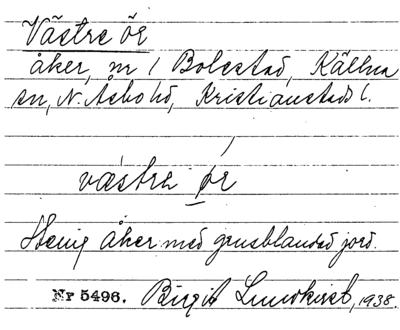 Västre ör
åker, nr 1 Bolestad, Källna
sn, N. Åsbo hd, Kristianstads l.
västrə ør
Stenig åker med grusblandad jord.
Nr 5496. Birgit Lundkvist, 1938.